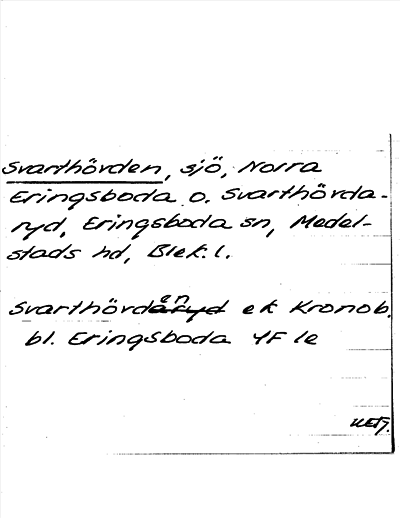 Svarthörden, sjö, Norra
Eringsboda o. Svarthörda-
ryd, Eringsboda sn, Medel-
stads hd, Blek. l.
Svarthörden ek Kronob.
bl. Eringsboda 4F le